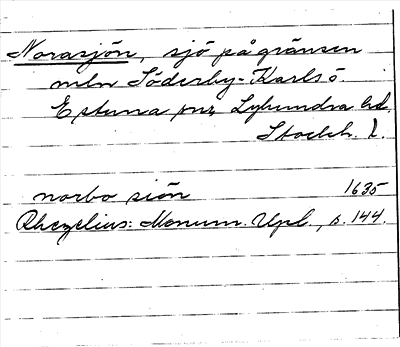 Norasjön, sjö på gränsen
mln Söderby-Karls o.
Estuna snr, Lyhundra hd.
Stockh. l.
norbo siön 1635
Rhezelius: Monum. Upl., s. 144.